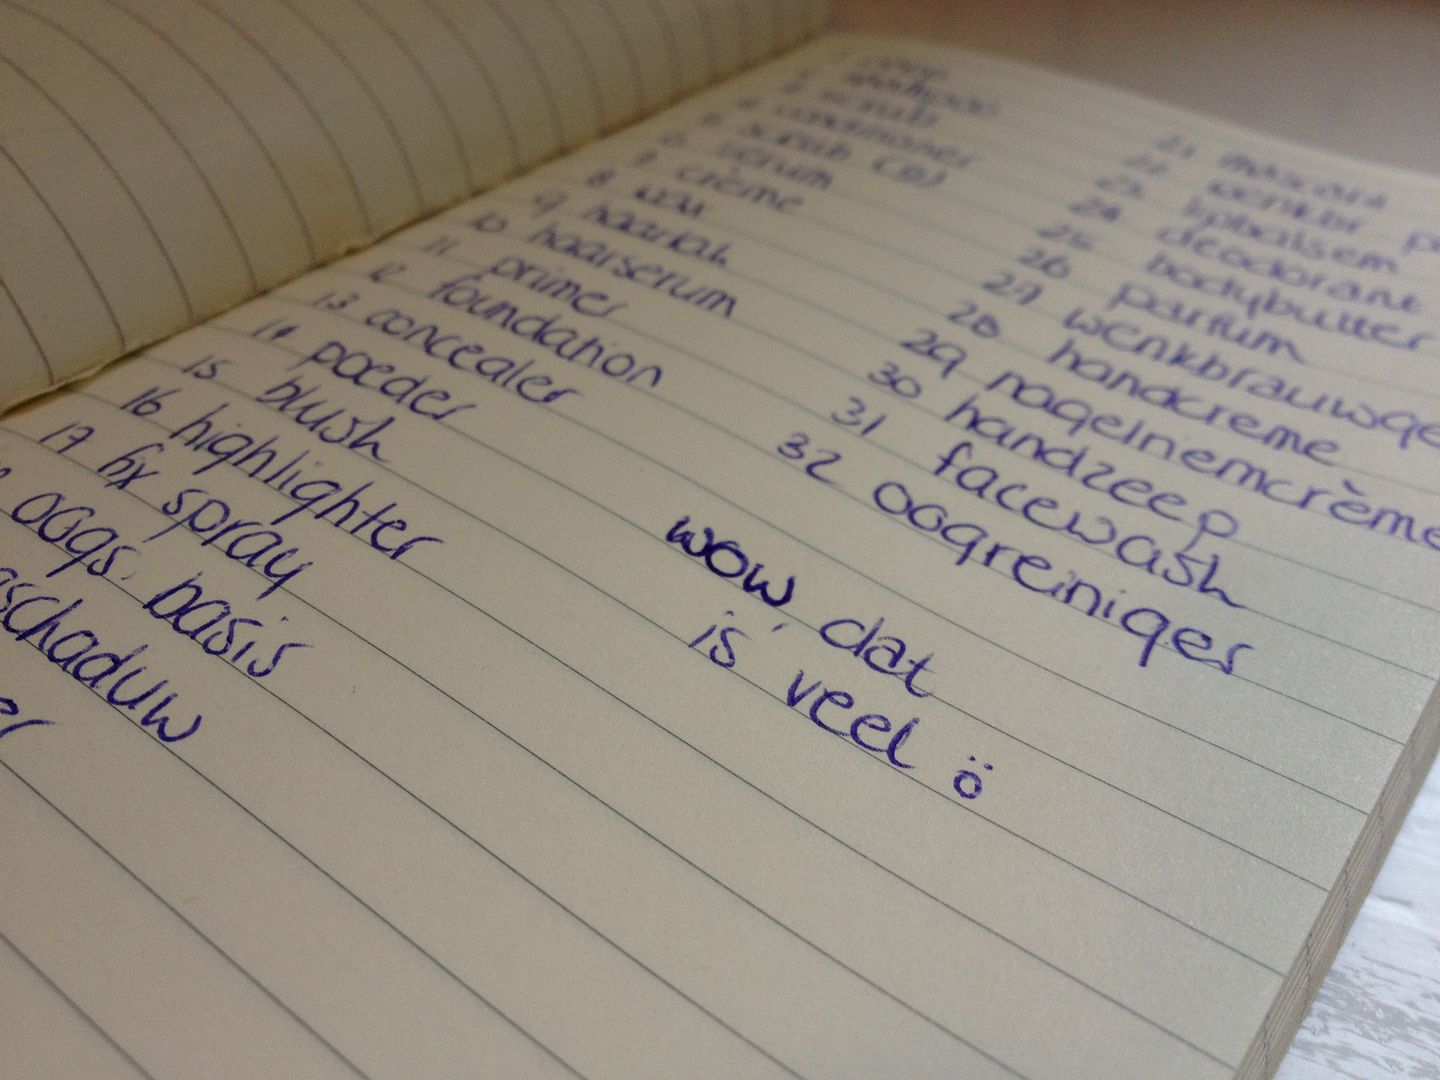 shampoo
3 scrub
4 conditioner
5 scrub (g)
6 serum
7 crème
8 wax
9 haarlak
10 haarserum
11 primer
12 foundation
13 concealer
14 poeder
15 blush
16 highlighter
17 fix spray
oogs. basis
schaduw
21 mascara
22 wenkbr
23 lipbalsem
24 deodorant
25 bodybutter
26 parfum
27 wenkbrauwge
28 handcreme
29 nagelriemcrème
30 handzeep
31 facewash
32 oogreiniger
wow, dat
is veel ö